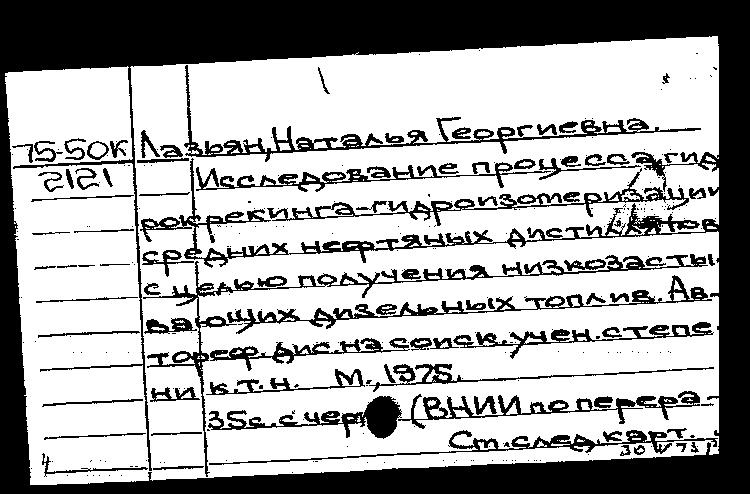 75-50К Лазьян, Наталья Георгиевна.
2121 Исследование процесса гид
рокрекинга-гидроизомеризации
средних нефтяных дистиллятов
с целью получения низкозасты-
вающих дизельных топлив. Ав-
тореф. дис. на соиск. учен. степе-
ни к.т.н. М., 1975.
35с. с черт (ВНИИ по перера-
Ст. след. карт.
4